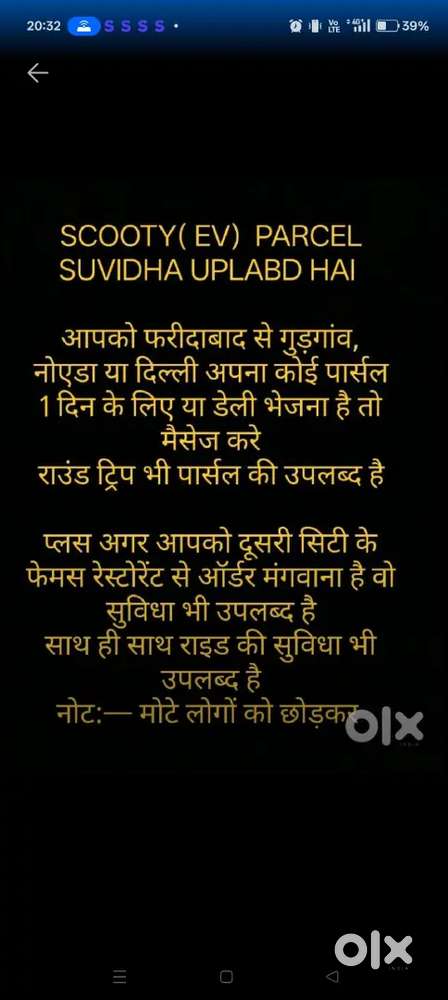 20:32
S S S S
Vo LTE
4G
39%
SCOOTY( EV) PARCEL
SUVIDHA UPLABD HAI
आपको फरीदाबाद से गुड़गांव,
नोएडा या दिल्ली अपना कोई पार्सल
1 दिन के लिए या डेली भेजना है तो
मैसेज करे
राउंड ट्रिप भी पार्सल की उपलब्द है
प्लस अगर आपको दूसरी सिटी के
फेमस रेस्टोरेंट से ऑर्डर मंगवाना है वो
सुविधा भी उपलब्द है
साथ ही साथ राइड की सुविधा भी
उपलब्द है
नोट:— मोटे लोगों को छोड़कर
olx
INDIA
olx
INDIA